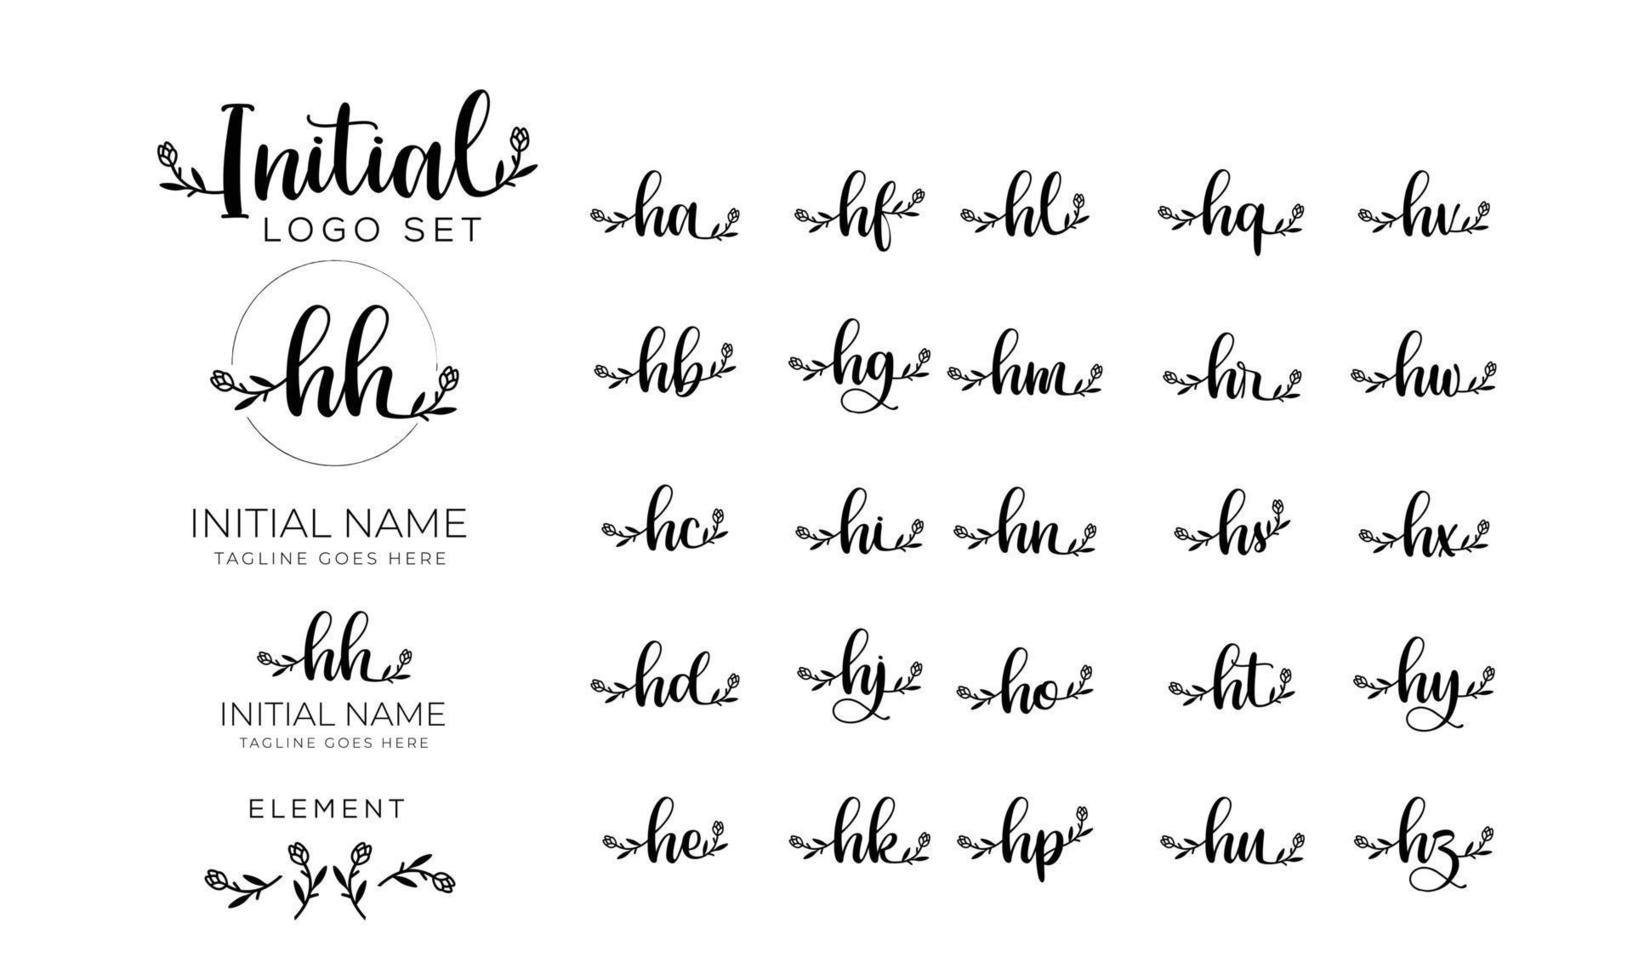 Initial
LOGO SET
hh
INITIAL NAME
TAGLINE GOES HERE
hh
INITIAL NAME
TAGLINE GOES HERE
ELEMENT
ha hf hl hq hv
hb hg hm hr hw
hc hi hn hs hx
hd hj ho ht hy
he hk hp hu hz